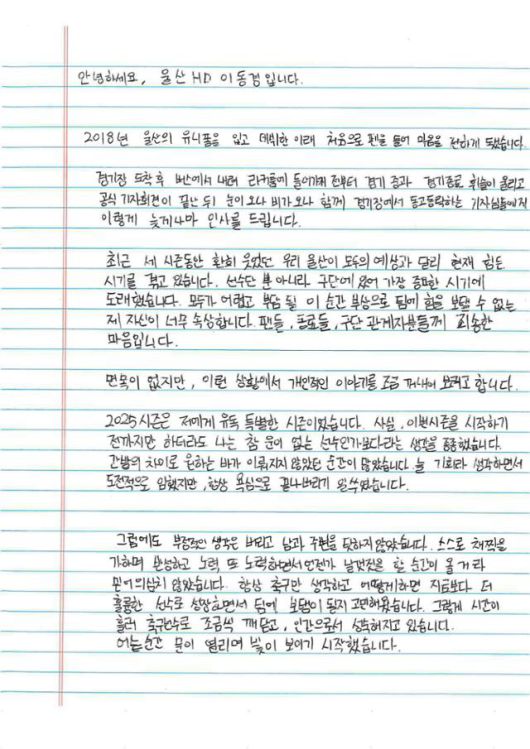 안녕하세요, 울산HD 이동경입니다.
2018년 울산의 유니폼을 입고 데뷔한 이래 처음으로 펜을 들어 마음을 전하게 됐습니다.
경기장 도착 후 버스에서 내려 라커룸에 들어가기 전부터 경기 중과 경기종료 휘슬이 울리고
공식 기자회견이 끝난 뒤 눈이 오나 비가 오나 함께 경기장에서 동고동락하는 기자님들에게
이렇게 늦게나마 인사를 드립니다.
최근 세 시즌동안 환히 웃었던 우리 울산이 모두의 예상과 달리 현재 힘든
시기를 겪고 있습니다. 선수단 뿐 아니라 구단에 있어 가장 중요한 시기에
도래했습니다. 모두가 어렵고 부담 될 이 순간 부상으로 팀에 힘을 보탤 수 없는
제 자신이 너무 속상합니다. 팬들, 동료들, 구단 관계자분들께 죄송한
마음입니다.
면목이 없지만, 이런 상황에서 개인적인 이야기를 조금 꺼내어 보려고 합니다.
2025시즌은 저에게 유독 특별한 시즌이었습니다. 사실, 이번시즌을 시작하기
전까지만 하더라도 나는 참 운이 없는 선수인가보다라는 생각을 종종했습니다.
간발의 차이로 원하는 바가 이뤄지지 않았던 순간이 많았습니다. 늘 기회라 생각하면서
도전적으로 임했지만, 항상 욕심으로 끝나버리기 일쑤였습니다.
그럼에도 부정적인 생각은 버리고 남과 주변을 탓하지 않았습니다. 스스로 채찍을
가하며 반성하고 노력 또 노력하면서 언젠가 날갯짓을 할 순간이 올 거라
믿어 의심치 않았습니다. 항상 축구만 생각하고 어떻게하면 지금보다 더
훌륭한 선수로 성장하면서 팀에 보탬이 될지 고민해왔습니다. 그렇게 시간이
흘러 축구선수로 조금씩 깨닫고, 인간으로서 성숙해지고 있습니다.
어느순간 문이 열리며 빛이 보이기 시작했습니다.